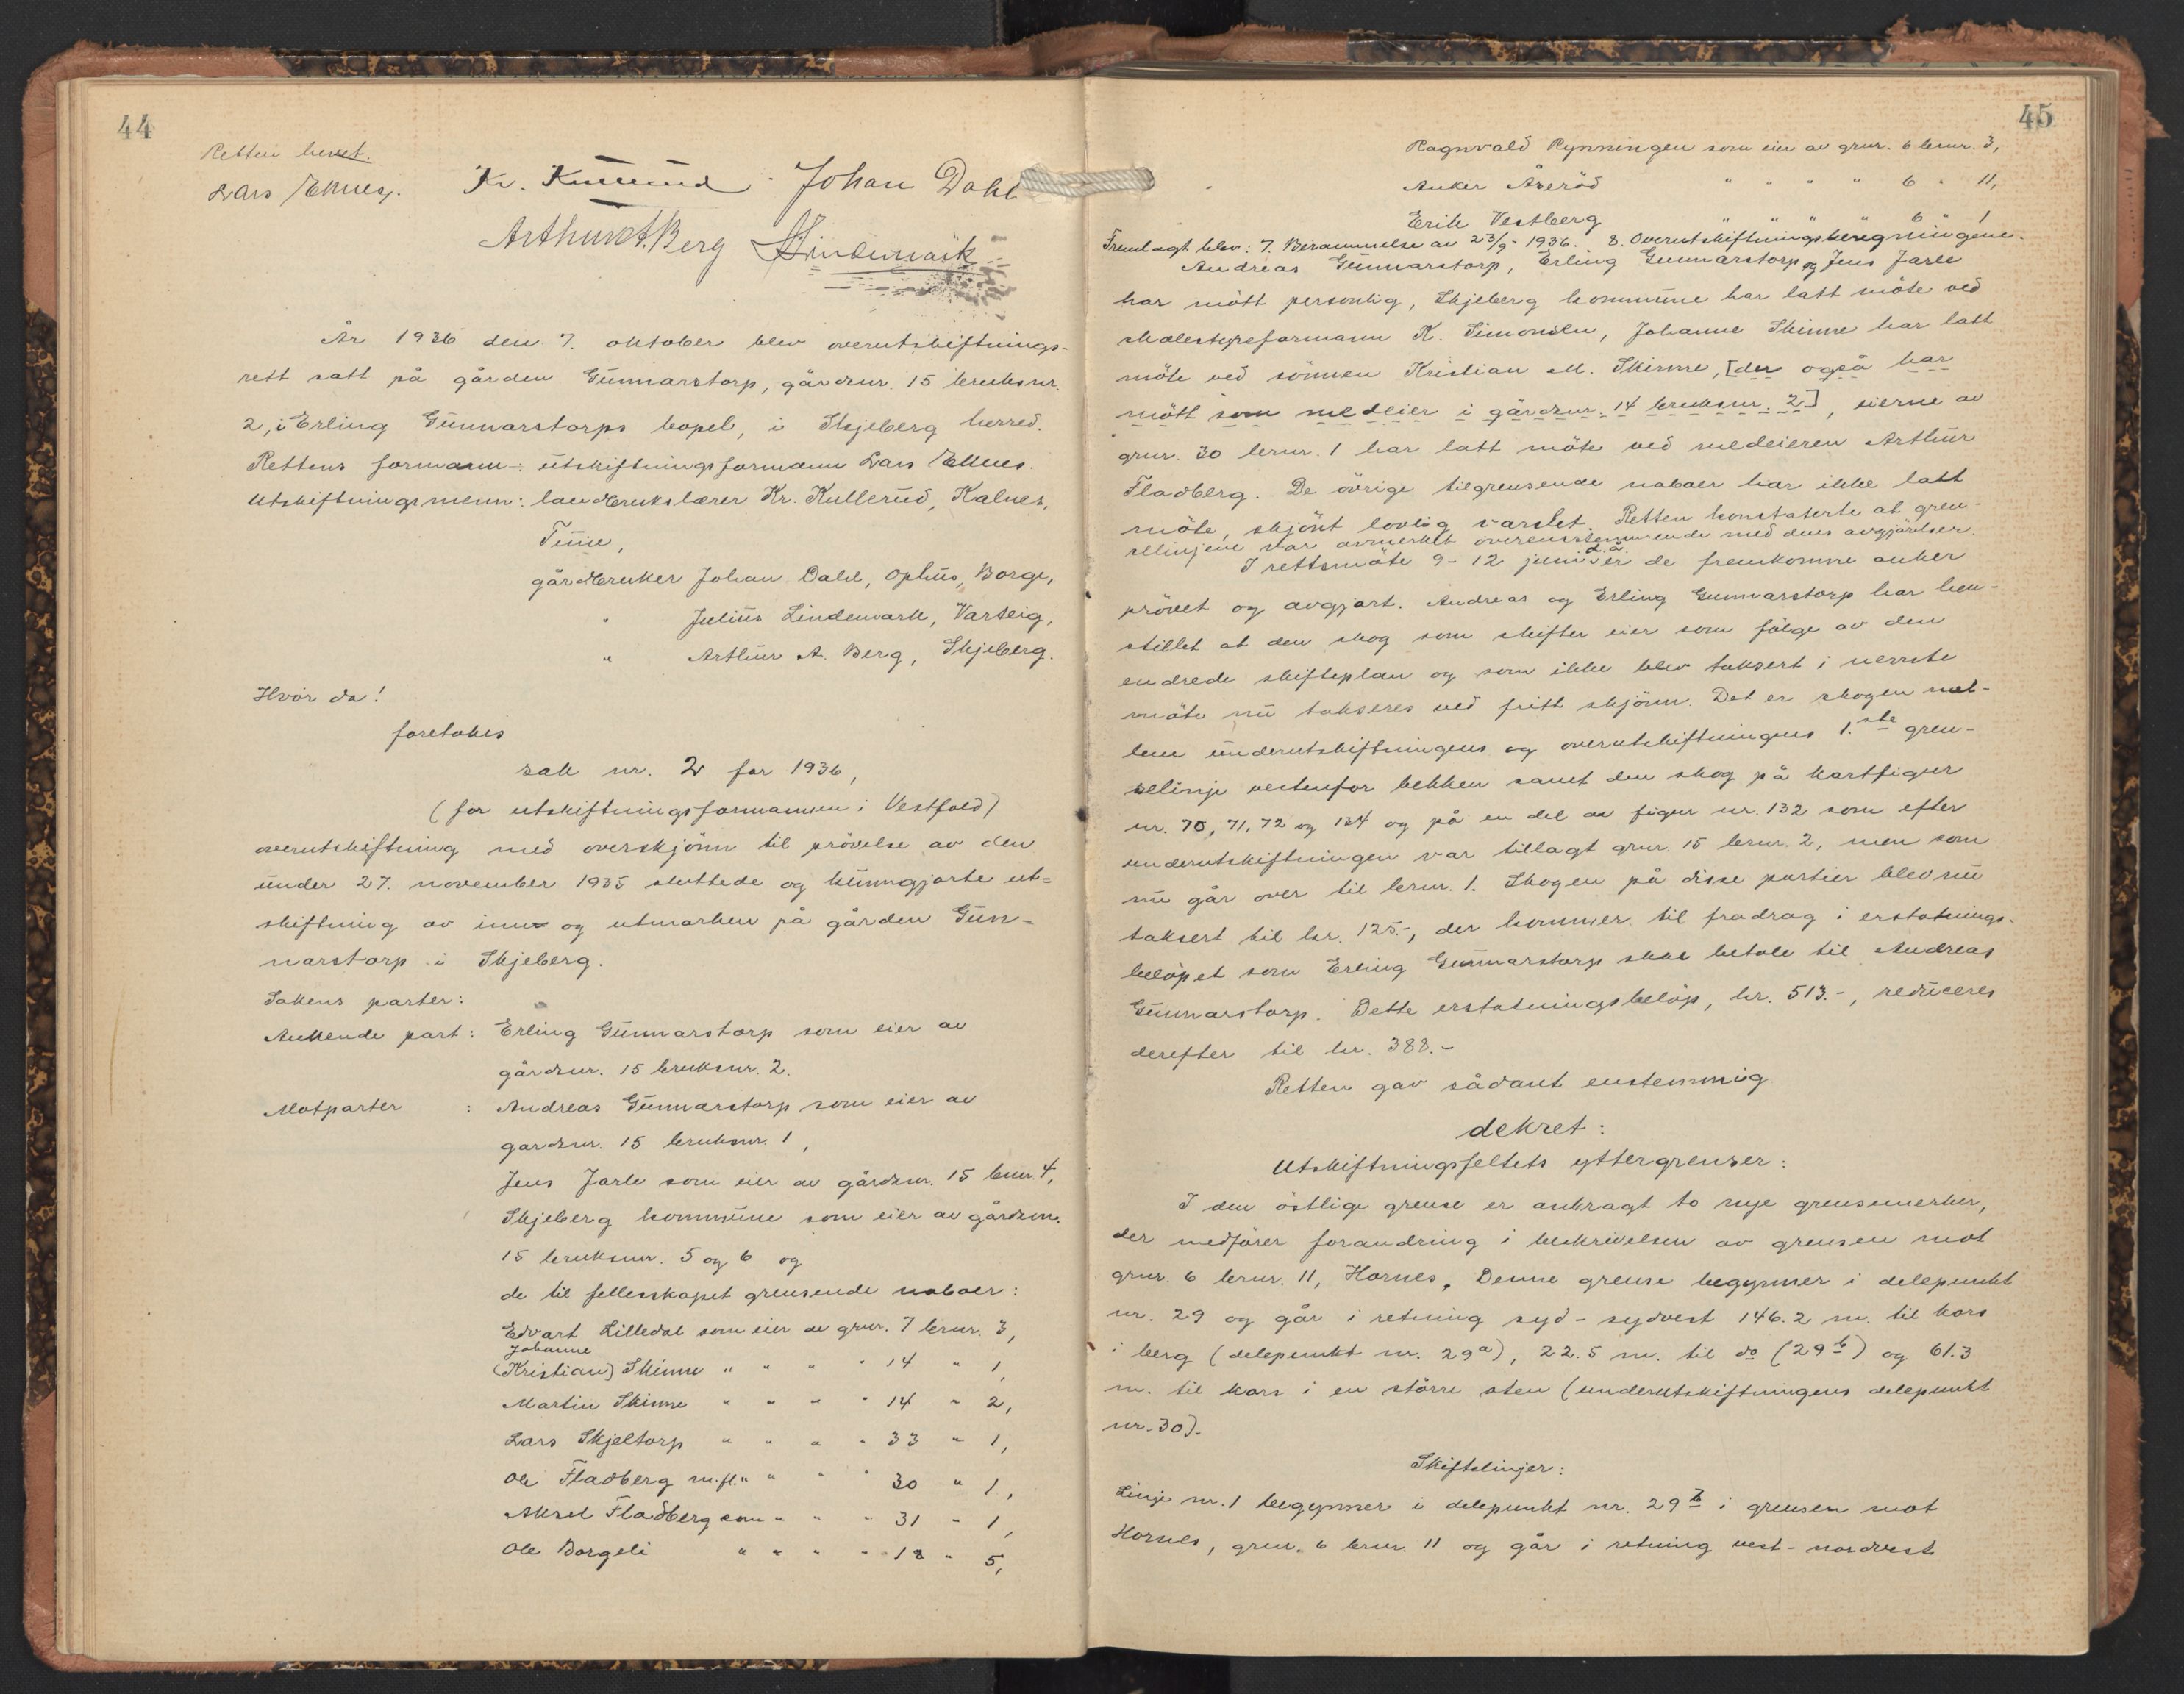 44
Retten hevet.
Lars Ellnes. Kr. Kullerud Johan Dahl
Arthur A. Berg J Lindemark
År 1936 den 7. oktober blev overutskiftnings-
rett satt på gården Gunnarstorp, gårdsnr. 15 bruksnr.
2, i Erling Gunnarstorps bopel, i Skjeberg herred.
Rettens formann: utskiftningsformann Lars Ellnes.
Utskiftningsmenn: landbrukslærer Kr. Kullerud, Kalnes,
Tune,
gårdbruker Johan Dahl, Ophus, Borge,
" Julius Lindemark, Varteig,
" Arthur A. Berg, Skjeberg.
Hvor da!
foretokes
sak nr. 2 for 1936,
(for utskiftningsformannen i Vestfold)
overutskiftning med overskjönn til prövelse av den
under 27. november 1935 sluttede og kunngjorte ut=
skiftning av inn- og utmarken på gården Gun-
narstorp i Skjeberg.
Sakens parter:
Ankende part: Erling Gunnarstorp som eier av
gårdsnr. 15 bruksnr. 2.
Motparter : Andreas Gunnarstorp som eier av
gardsnr. 15 bruksnr. 1,
Jens Jarle som eier av gårdsnr. 15 brnr. 4,
Skjeberg kommune som eier av gårdsnr.
15 bruksnr. 5 og 6 og
de til fellesskapet grensende naboer:
Edvart Lilledal som eier av grnr. 7 brnr. 3,
Johanne
(Kristian) Skinne " " " " 14 " 1,
Martin Skinne " " " " 14 " 2,
Lars Skjeltorp " " " " 33 " 1,
Ole Fladberg m.fl. " " " " 30 " 1,
Aksel Fladberg som " " " 31 " 1,
Ole Borgeli " " " " 18 " 5,
45
Ragnvald Rynningen som eier av grnr. 6 brnr. 3,
Anker Åseröd " " " " 6 " 11,
Erik Vestberg " " " " 6 " 1
Fremlagt blev: 7. Berammelse av 23/9 1936. 8. Overutskiftningsberegningene.
Andreas Gunnarstorp, Erling Gunnarstorp og Jens Jarle
har mött personlig, Skjeberg kommune har latt möte ved
skolestyreformann K. Simonsen, Johanne Skinne har latt
möte ved sönnen Kristian M. Skinne, [der også har
mött som medeier i gårdsnr. 14 bruksnr. 2], eierne av
grnr. 30 brnr. 1 har latt möte ved medeieren Arthur
Fladberg. De övrige tilgrensende naboer har ikke latt
möte, skjönt lovlig varslet. Retten konstaterte at gren-
selinjene var avmerket overensstemmende med dens avgjörelser.
I rettsmöte 9-12 juni d.å. er de fremkomne anker
prövet og avgjort. Andreas og Erling Gunnarstorp har hen-
stillet at den skog som skifter eier som fölge av den
endrede skifteplan og som ikke blev taksert i nevnte
möte nu takseres ved fritt skjönn. Det er skogen mel-
lem underutskiftningens og overutskiftningens 1.ste gren-
selinje vestenfor bekken samt den skog på kartfigur
nr. 70, 71, 72 og 134 og på en del av figur nr. 132 som efter
underutskiftningen var tillagt grnr. 15 brnr. 2, men som
nu går over til brnr. 1. Skogen på disse partier blev nu
taksert til kr. 125.-, der kommer til fradrag i erstatnings-
belöpet som Erling Gunnarstorp skal betale til Andreas
Gunnarstorp. Dette erstatningsbelöp, kr. 513.-, reduceres
derefter til kr. 388.-
Retten gav sådant enstemmig
dekret:
Utskiftningsfeltets yttergrenser:
I den östlige grense er anbragt to nye grensemerker,
der medförer forandring i beskrivelsen av grensen mot
grnr. 6 brnr. 11, Hornes. Denne grense begynner i delepunkt
nr. 29 og går i retning syd-sydvest 146.2 m. til kors
i berg (delepunkt nr. 29a), 22.5 m. til do (29b) og 61.3
m. til kors i en större sten (underutskiftningens delepunkt
nr. 30).
Skiftelinjer:
Linje nr. 1 begynner i delepunkt nr. 29b i grensen mot
Hornes, grnr. 6 brnr. 11 og går i retning vest-nordvest